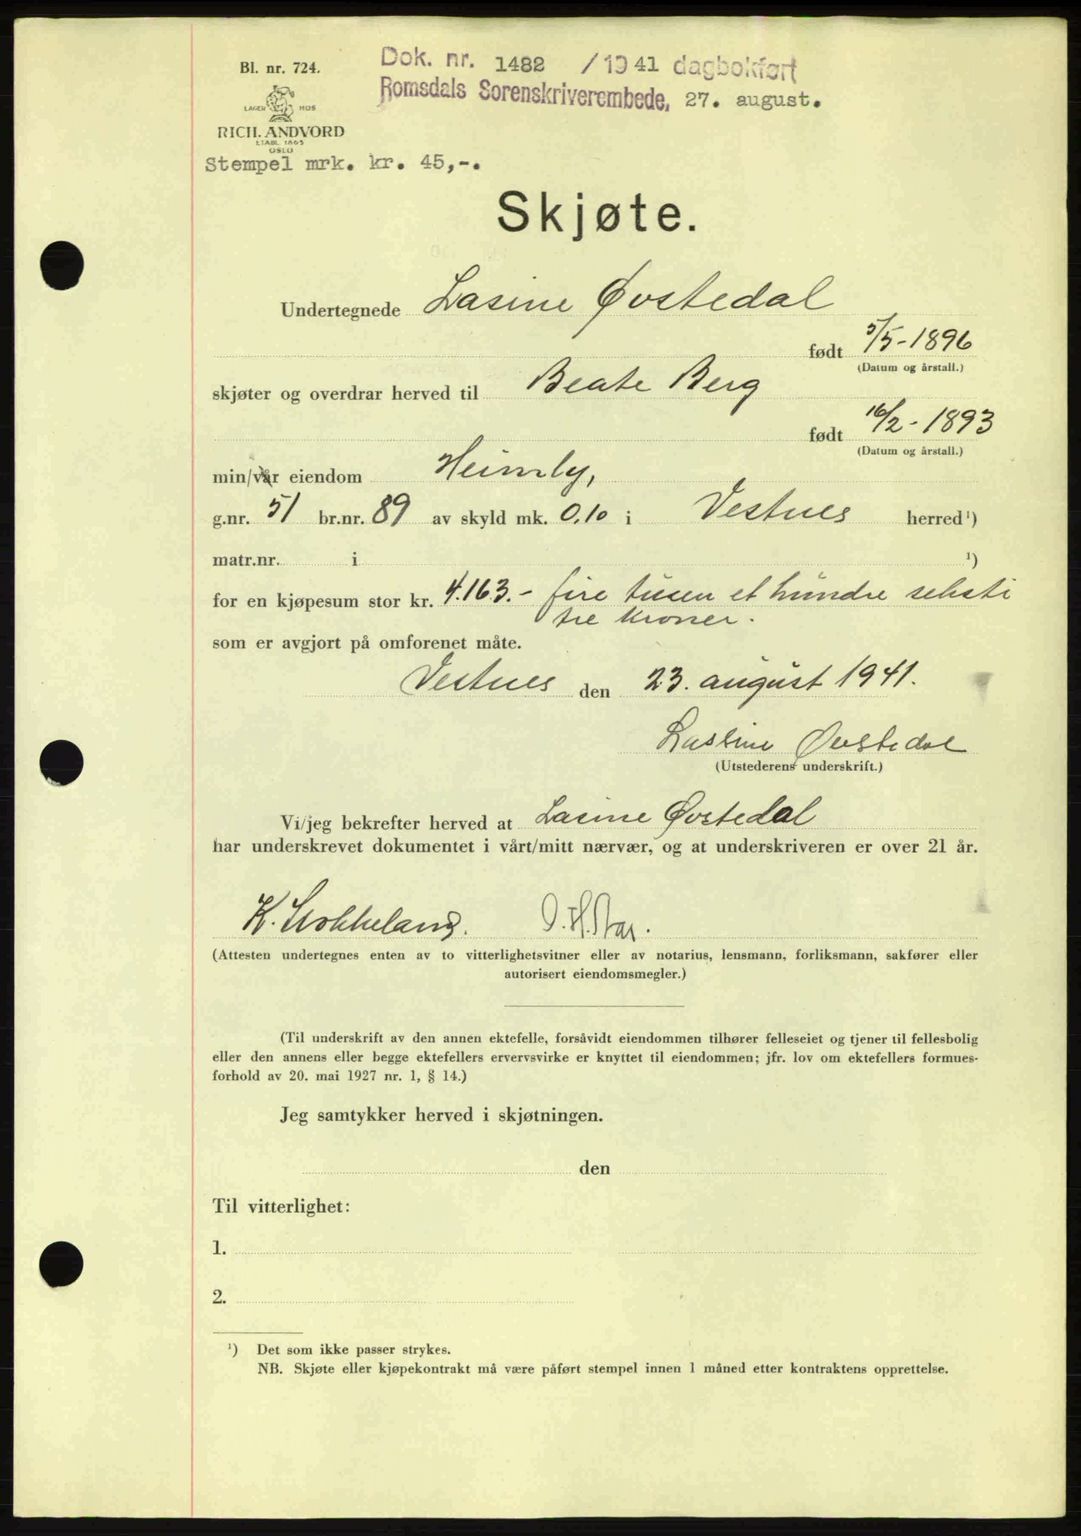 Bl. nr. 724.
Dok. nr. 1482 /1941 dagbokført
Romsdals Sorenskriverembede, 27. august.
LAGER HUS
RICH. ANDVORD
ETABL. 1865
OSLO
Stempel mrk. kr. 45,-.
Skjøte.
Undertegnede Lasine Øvstedal
født 5/5-1896
(Datum og årstall.)
skjøter og overdrar herved til Beate Berg
født 16/2-1893
(Datum og årstall.)
min/vår eiendom Heimly,
g.nr. 51 br.nr. 89 av skyld mk. 0,10 i Vestnes herred¹)
matr.nr. i ¹)
for en kjøpesum stor kr. 4.163.- fire tusen et hundre seksti
tre kroner.
som er avgjort på omforenet måte.
Vestnes den 23. august 1941.
Lassine Øvstedal
(Utstederens underskrift.)
Vi/jeg bekrefter herved at Lasine Øvstedal
har underskrevet dokumentet i vårt/mitt nærvær, og at underskriveren er over 21 år.
K. Stokkeland. O.H.
(Attesten undertegnes enten av to vitterlighetsvitner eller av notarius, lensmann, forliksmann, sakfører eller
autorisert eiendomsmegler.)
(Til underskrift av den annen ektefelle, forsåvidt eiendommen tilhører felleseiet og tjener til fellesbolig
eller den annens eller begge ektefellers ervervsvirke er knyttet til eiendommen; jfr. lov om ektefellers formues-
forhold av 20. mai 1927 nr. 1, § 14.)
Jeg samtykker herved i skjøtningen.
den
Til vitterlighet:
1.
2.
¹) Det som ikke passer strykes.
NB. Skjøte eller kjøpekontrakt må være påført stempel innen 1 måned etter kontraktens opprettelse.